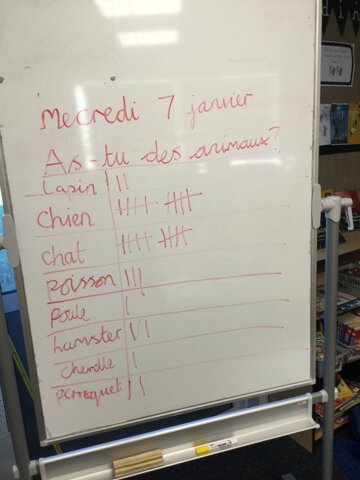 Mecredi 7 janvier
As-tu des animaux?
Lapin ||
Chien |||| ||||
Chat |||| ||||
Poisson |||
Poule |
hamster ||
|
perroquet ||